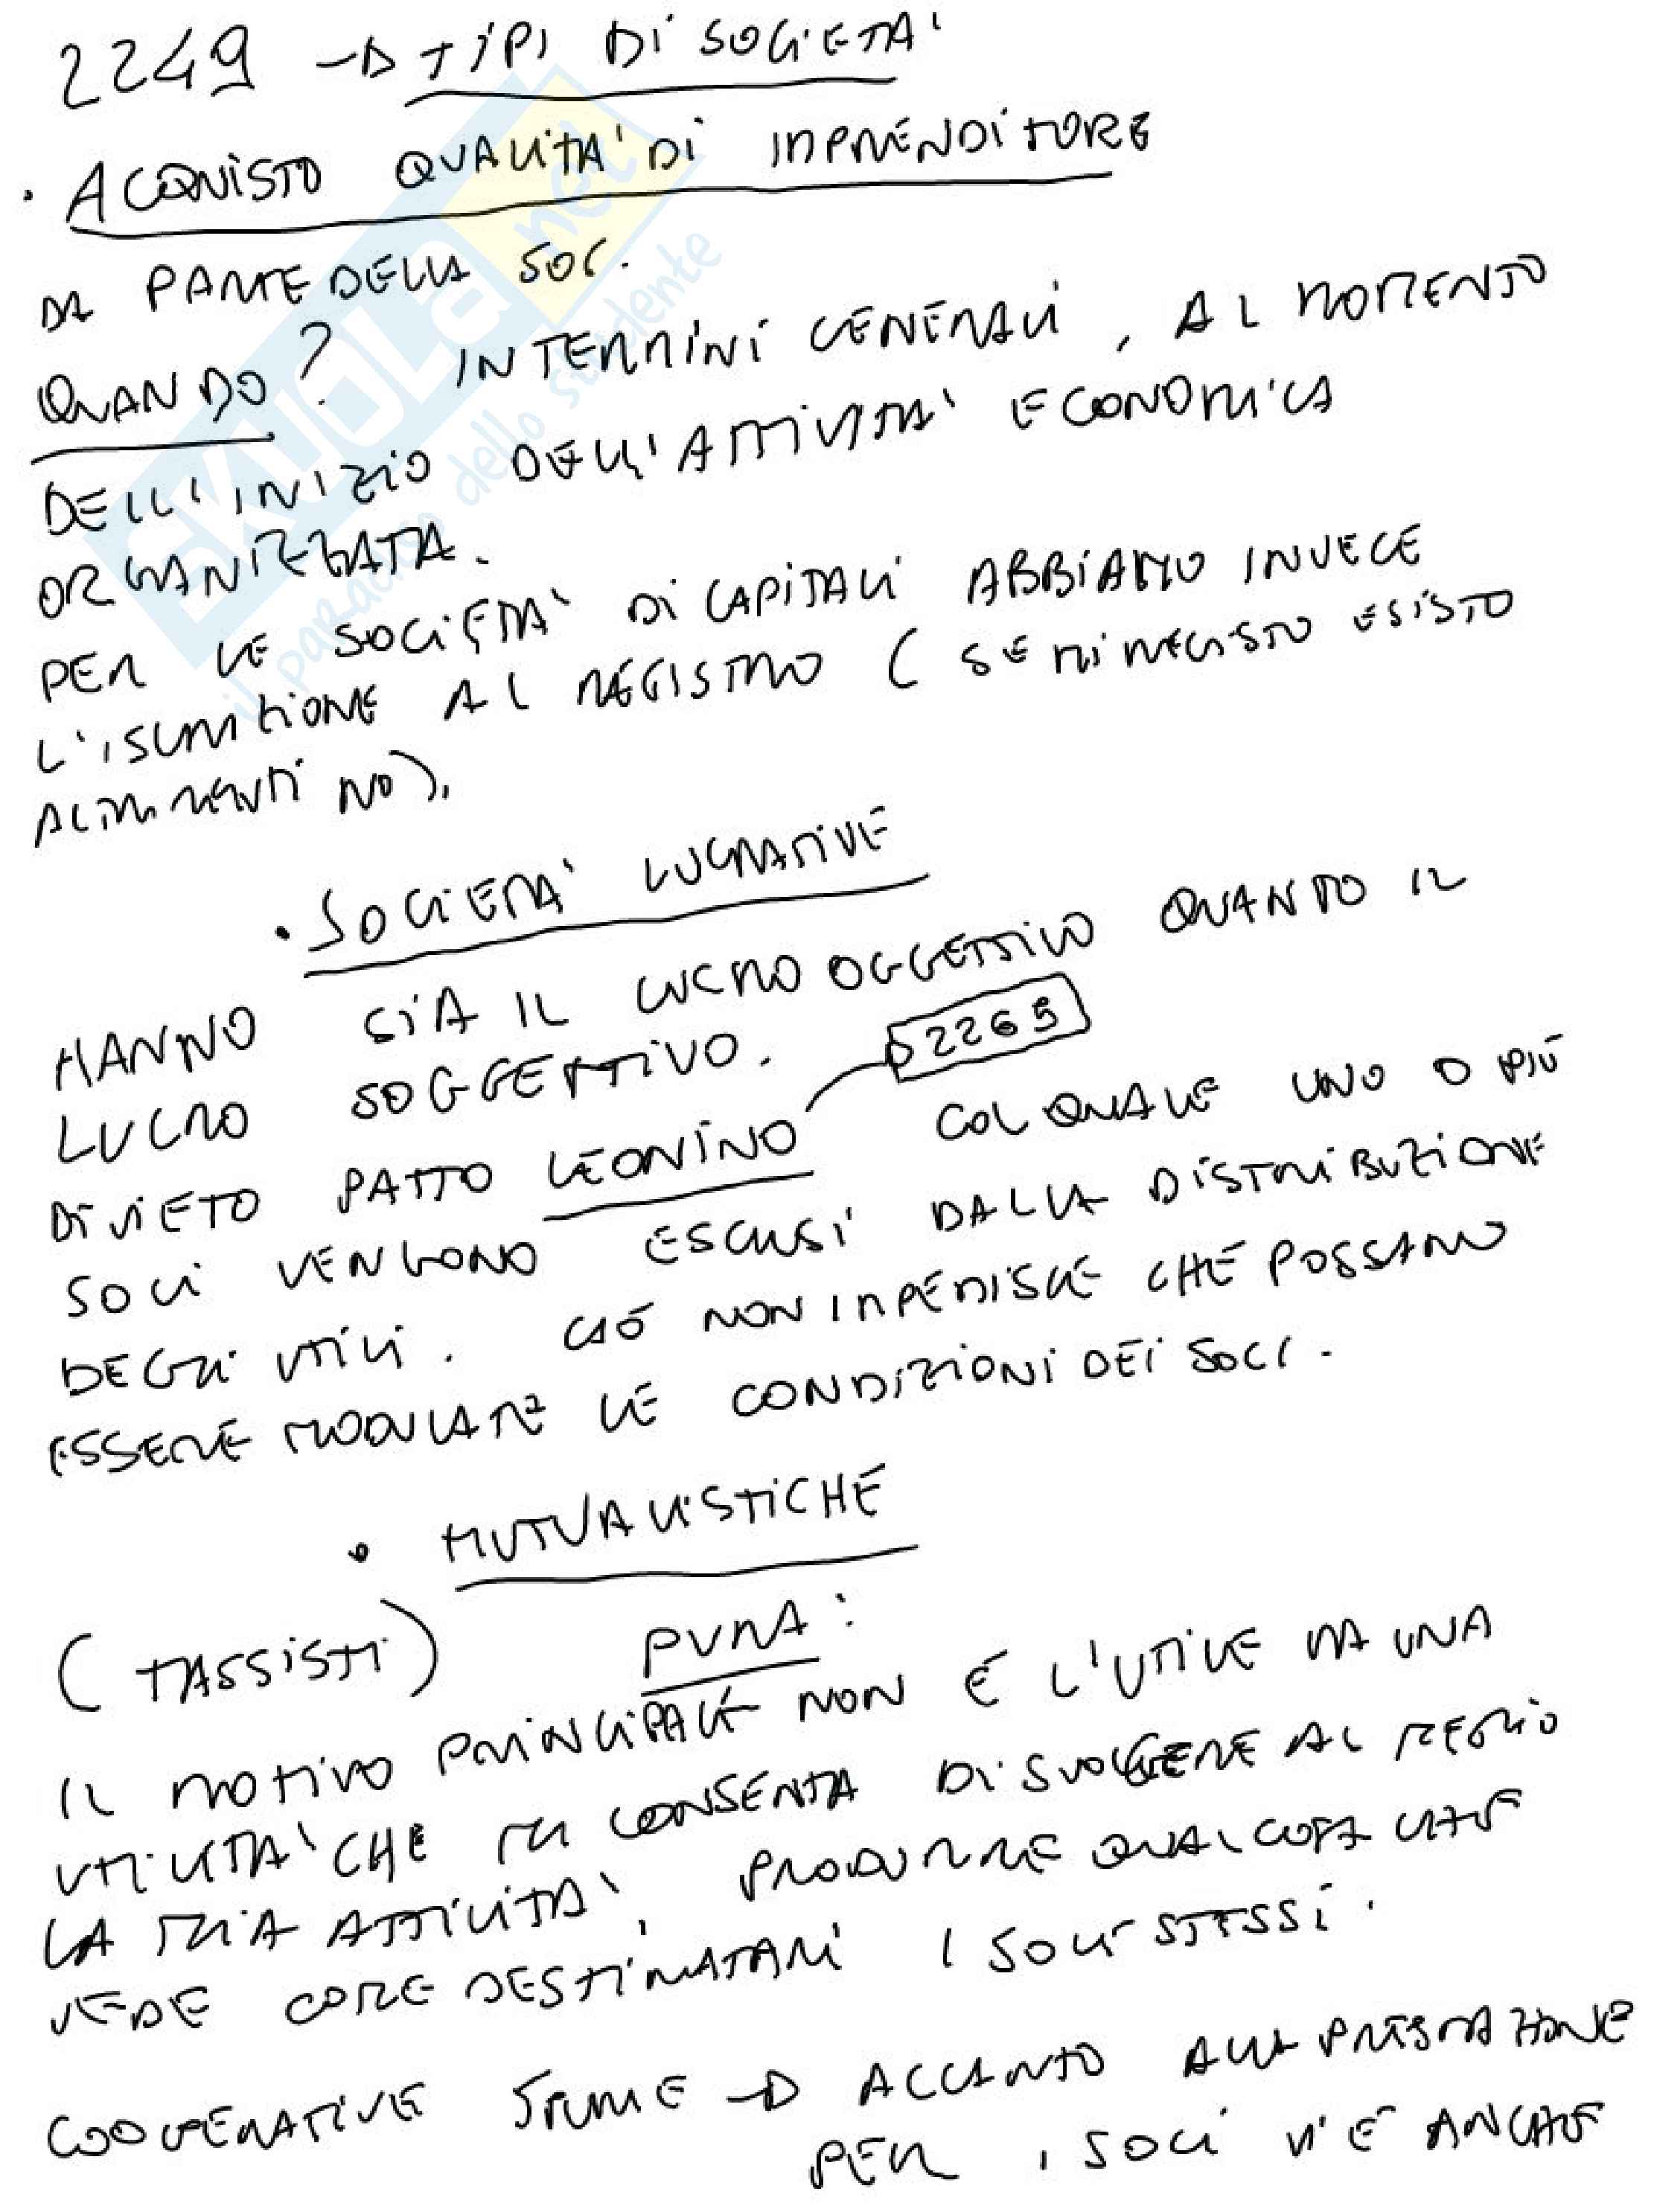 2249 → TIPI DI SOCIETA'
• ACQUISTO QUALITA' DI IMPRENDITORE
DA PARTE DELLA SOC.
QUANDO? IN TERMINI GENERALI, AL MOMENTO
DELL'INIZIO DELL'ATTIVITA' ECONOMICA
ORGANIZZATA.
PER LE SOCIETA' DI CAPITALI ABBIAMO INVECE
L'ISCRIZIONE AL REGISTRO (SE MI REGISTO ESISTO
ALTRIMENTI NO).
• SOCIETA' LUCRATIVE
HANNO SIA IL LUCRO OGGETTIVO QUANTO IL
LUCRO SOGGETTIVO. → 2265
DIVIETO PATTO LEONINO COL QUALE UNO O PIÙ
SOCI VENGONO ESCLUSI DALLA DISTRIBUZIONE
DEGLI UTILI. CIÒ NON IMPEDISCE CHE POSSANO
ESSERE MODULATE LE CONDIZIONI DEI SOCI.
• MUTUALISTICHE
(TASSISTI) PURA:
IL MOTIVO PRINCIPALE NON È L'UTILE MA UNA
UTILITA' CHE MI CONSENTA DI SVOLGERE AL MEGLIO
LA MIA ATTIVITA', PRODURRE QUALCOSA CHE
VEDE COME DESTINATARI I SOCI STESSI.
COOPERATIVE SPURIE → ACCANTO ALLA PRESTAZIONE
PER I SOCI V'È ANCHE
SKUOLA.net
il paradiso dello studente